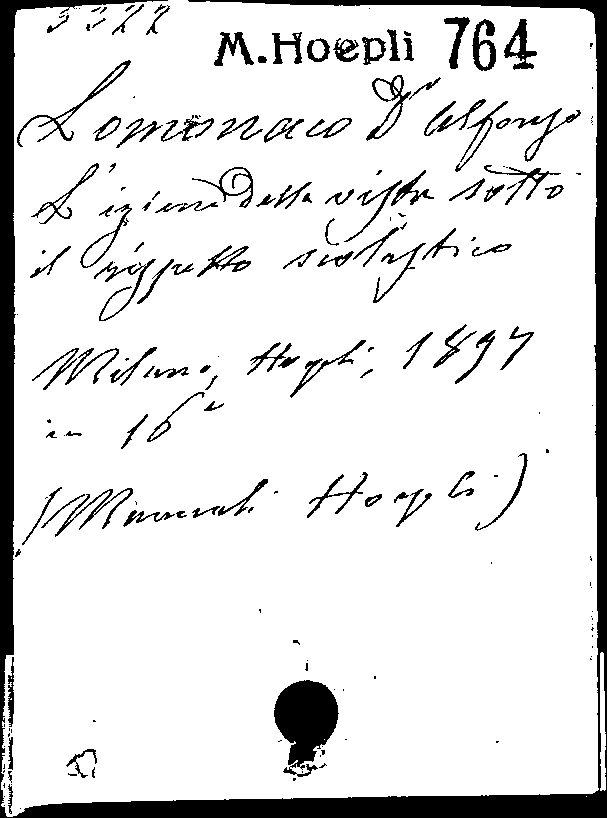 3322
M. Hoepli 764
Lomonaco Dr Alfonso
L'igiene della vista sotto
il rispetto scolastico
Milano, Hoepli, 1897
in 16°
(Manuali Hoepli)